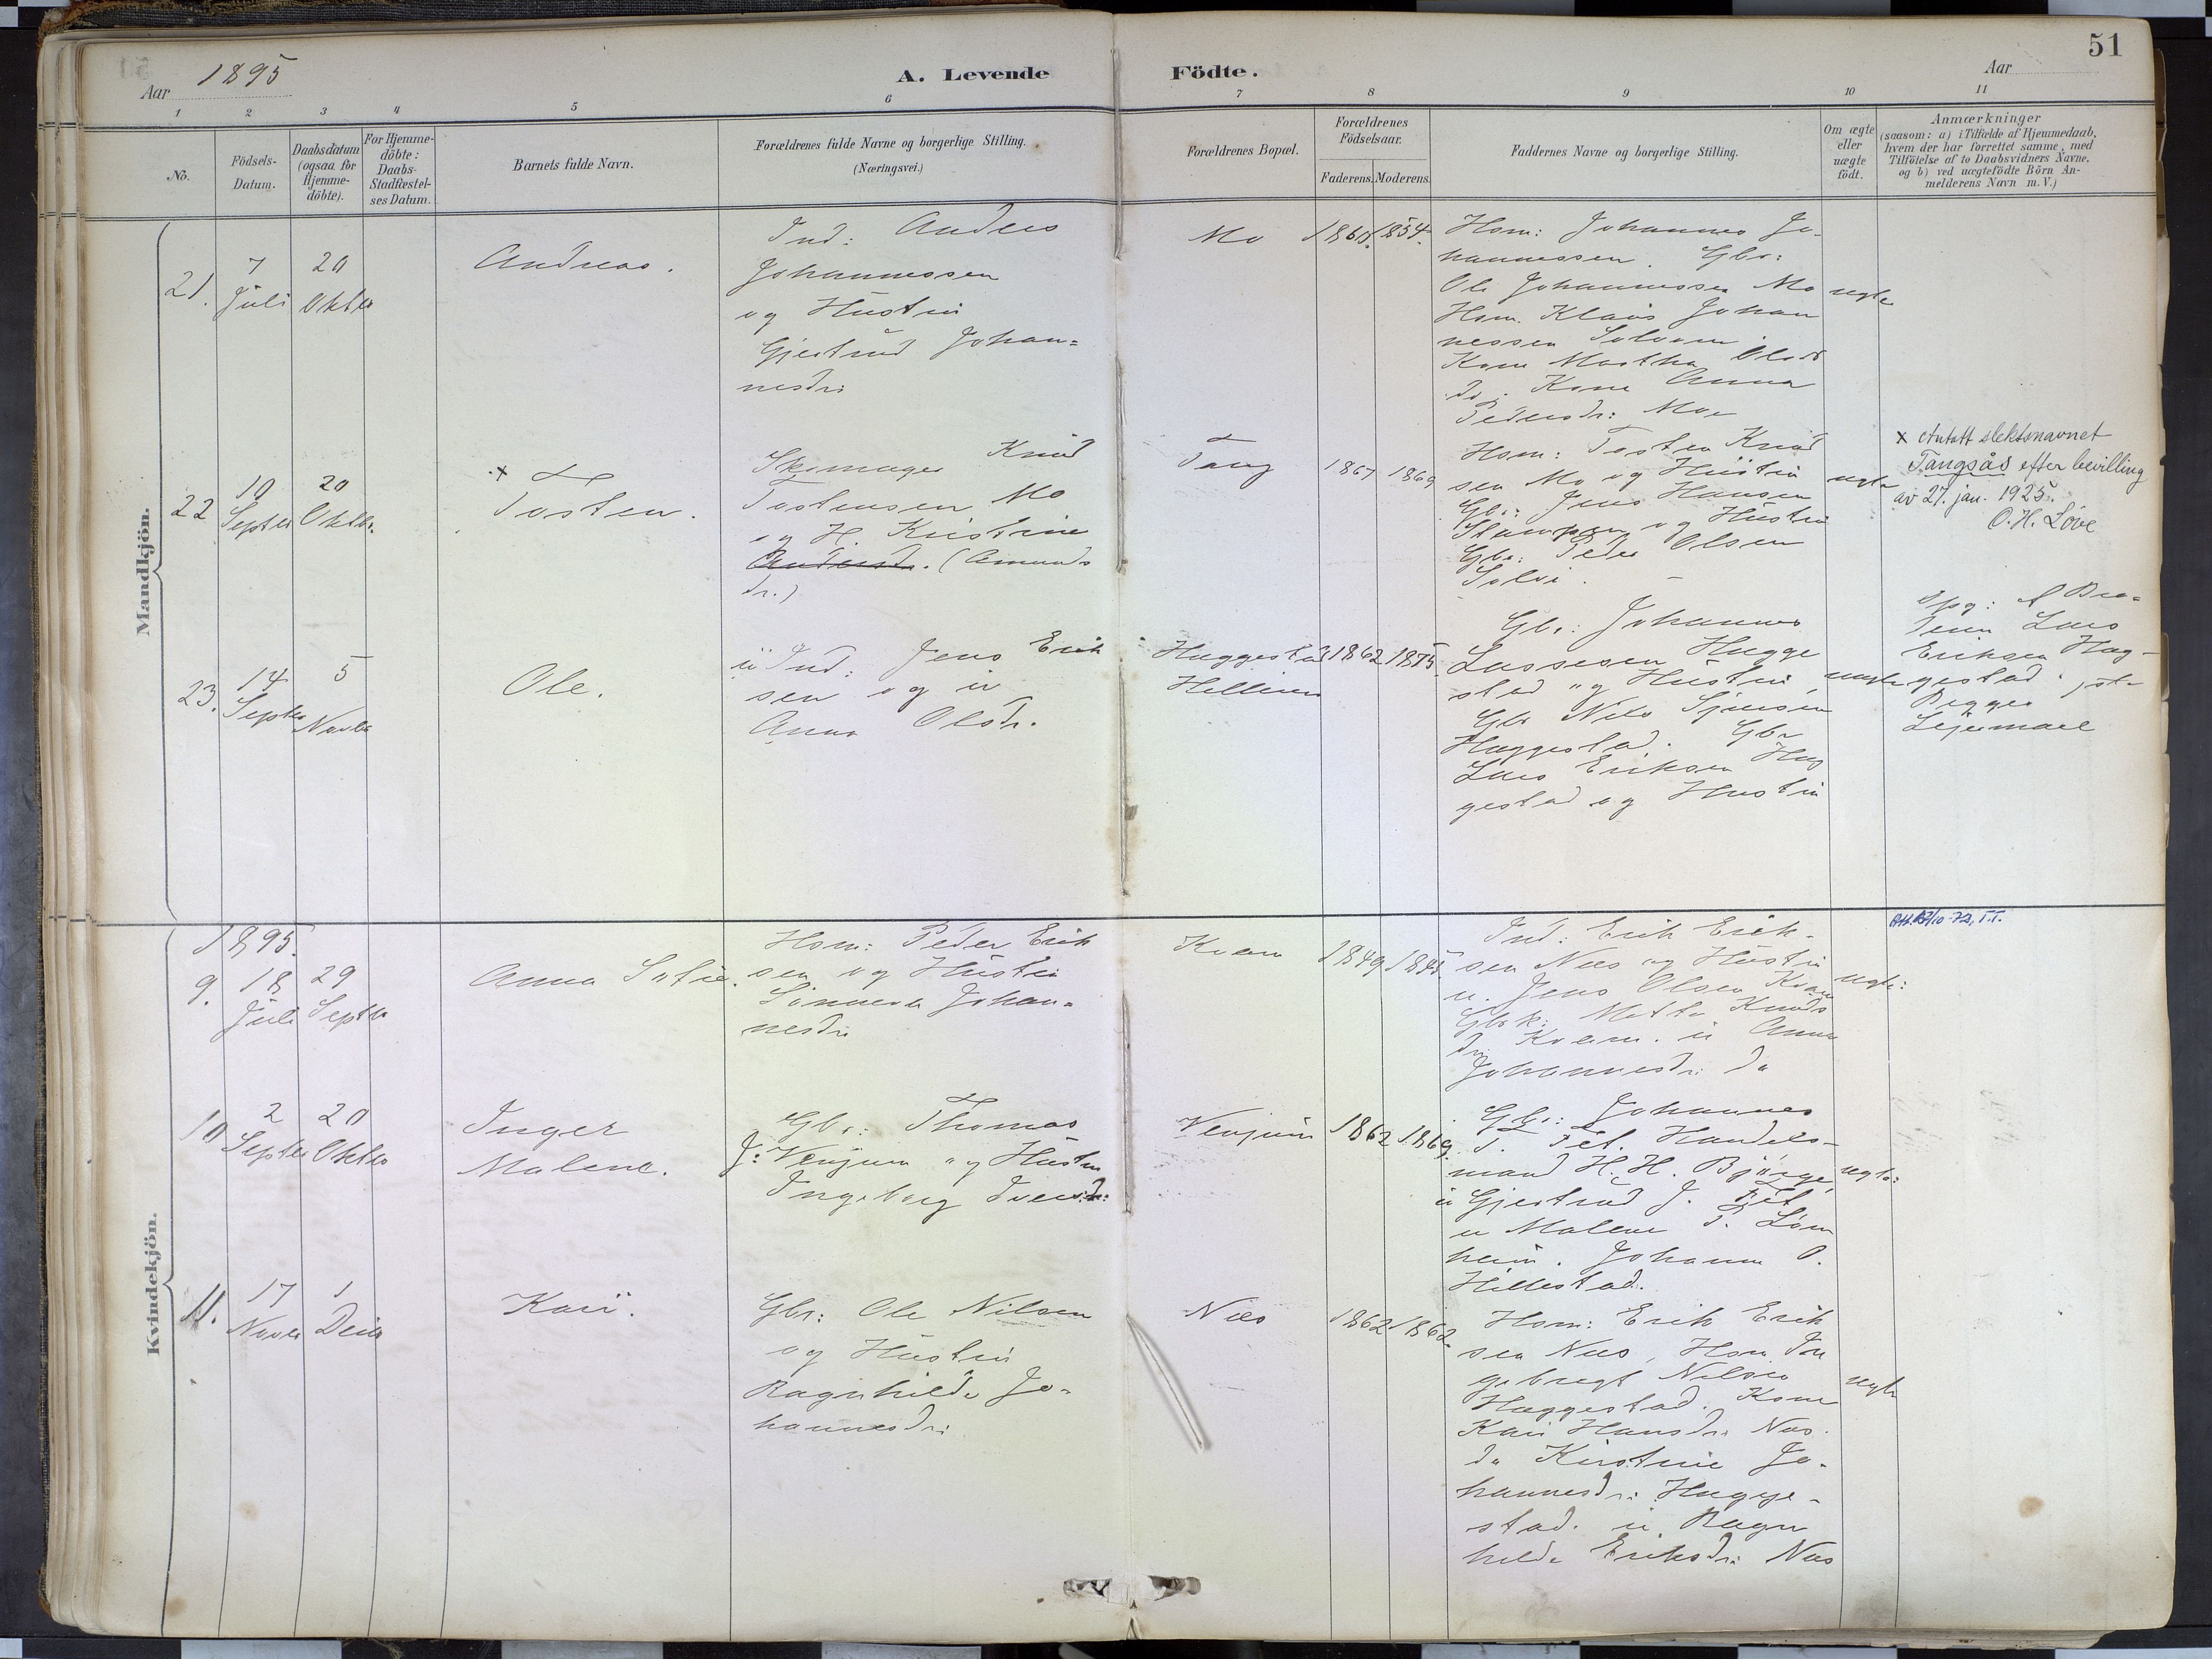 51
Aar 1895
A. Levende Födte.
Aar
1 2 3 4 5 6 7 8 9 10 11
No.
Födsels-Datum.
Daabsdatum (ogsaa for Hjemme-döbte).
For Hjemme-döbte: Daabs-Stadfæstel-ses Datum.
Barnets fulde Navn.
Forældrenes fulde Navne og borgerlige Stilling.
(Næringsvei.)
Forældrenes Bopæl.
Forældrenes Födselsaar.
Faderens. Moderens.
Faddernes Navne og borgerlige Stilling.
Om ægte eller uægte födt.
Anmærkninger
(saasom: a) i Tilfælde af Hjemmedaab,
hvem der har forrettet samme, med
Tilföielse af to Daabsvidners Navne.
og b) ved uægtefödte Börn An-
melderens Navn m. V.)
Mandkjön.
21.
7 Juli
20 Oktbr
Andreas.
Ind: Anders
Johannessen
og Hustru
Gjertrud Johan=
nesdr:
Mo
1854.
Hsm: Johannes Jo-
hannessen. Gbr:
Ole Johannessen Mo
Hsm. Klaus Johan
nessen
Kone Martha Olsd
do; Kone Anna
Pedersdr: Mo
ægte
22
10 Septbr
20 Oktbr.
x
Tosten.
Skomager Knud
Tostensen Mo
og H. Kristine
Andersdr. (Amunds
dr.)
Tang
1867 1869
Hsm: Tosten Knud
sen Mo og Hustru
Gbr: Jens Hansen
og Hustru
Gbr: Peder Olsen
ægte
x Antatt slektsnavnet
Tangsås efter bevilling
av 27. jan. 1925.
O. H. Løve
23.
14 Septbr
5 Novbr
Ole.
ü Ind: Jens Erik
sen og ü
Anna Olsdr.
Huggestad
1862 1875.
Gbr: Johannes
Lassesen Hugge
stad og Hustru,
Gbr Nils
Huggestad. Gbr
Lars Eriksen Hug
gestad og Hustru
uægte
Lars
Eriksen Hug-
gestad.
Begges
Leiermaal
Kvindekjön.
1895.
9.
18 Juli
29 Septbr
Anna Sofie.
Hsm: Peder Erik
sen og Hustru
Sønneva Johan=
nesdr:
Kvam
1849
Ind: Erik Erik-
sen Næs og Hustru
u. Jens Olsen Kvam
Gbrk: Metta Knuds
dr: Kvam. ü Anna
Johannesdr: do
ægte:
10
2 Septbr
20 Oktbr
Inger
Malene.
Gbr: Thomas
J: Venjum og Hustru
Ingeborg Iversdr:
Venjum
1862 1869.
Gbr: Johannes
T. Fet. Handels-
mand H. H. Bjørge,
ü Gjertrud J. Fet
ü Malene T. Løm
heim. Johanne O.
Hillestad.
ægte:
11.
17 Novbr
1 Decbr
Kari.
Gbr: Ole Nilsen
og Hustru
Ragnhilde Jo-
hannesdr:
Næs
1862 1862.
Hsm: Erik Erik
sen Næs, Hsm In
gebrigt Nilsen
Huggestad. Kone
Kari Hansdr: Næs.
do Kirstine Jo-
hannesdr: Hugge-
stad. ü Ragn
hilde Eriksdr: Næs
ægte